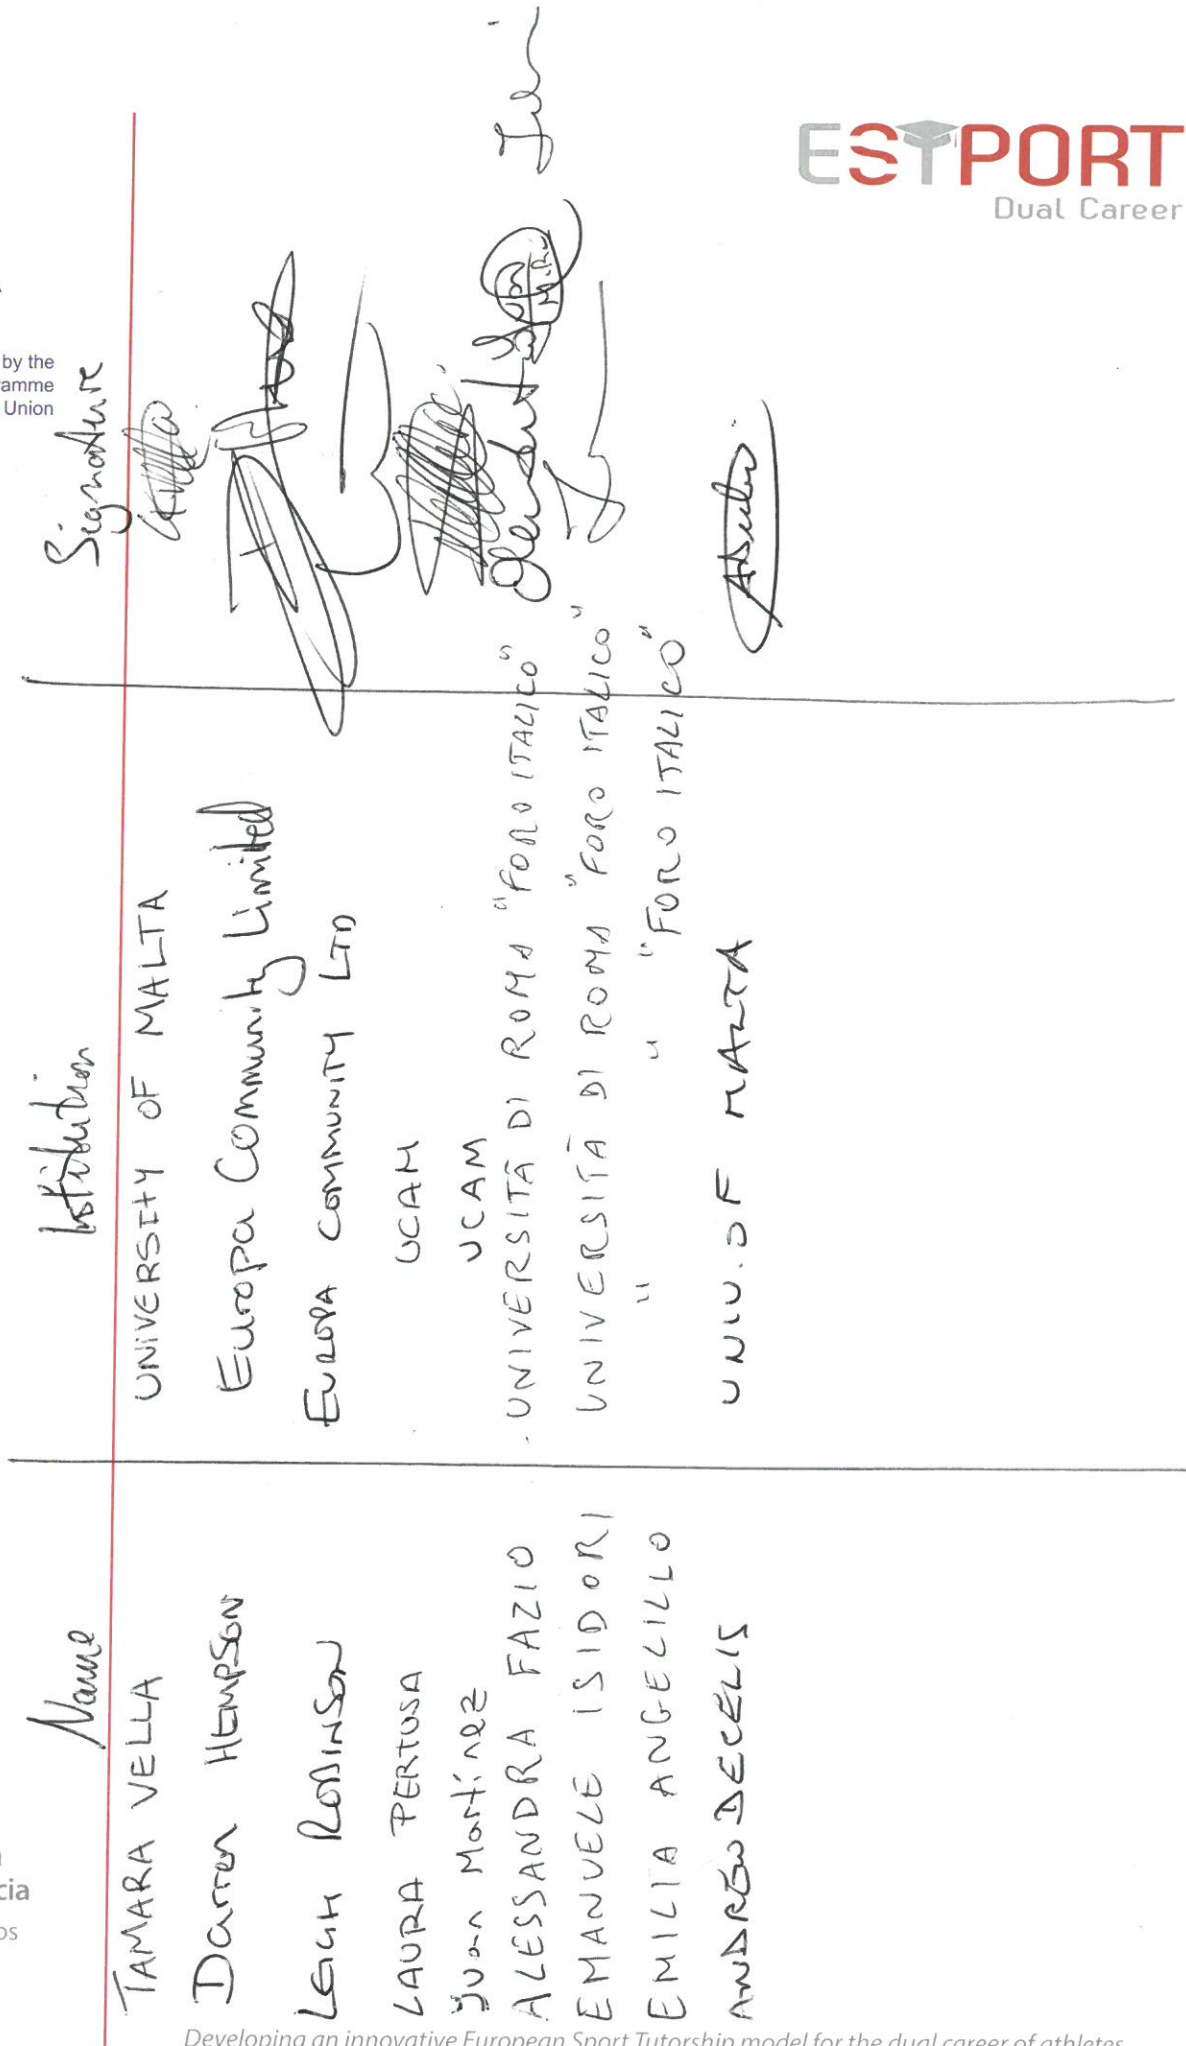 ESTPORT
Dual Career
by the
ramme
Union
Name Institution Signature
TAMARA VELLA UNIVERSITY OF MALTA
Darren HEMPSON Europa Community Limited
LEIGH ROBINSON EUROPA COMMUNITY LTD
LAURA PERTUSA UCAM
Juan Martínez UCAM
ALESSANDRA FAZIO UNIVERSITÀ DI ROMA "FORO ITALICO"
EMANUELE ISIDORI UNIVERSITÀ DI ROMA "FORO ITALICO"
EMILIA ANGELILLO " " "FORO ITALICO"
ANDREW DECELIS UNIV. OF MALTA
cia
os
Developing an innovative European Sport Tutorship model for the dual career of athletes